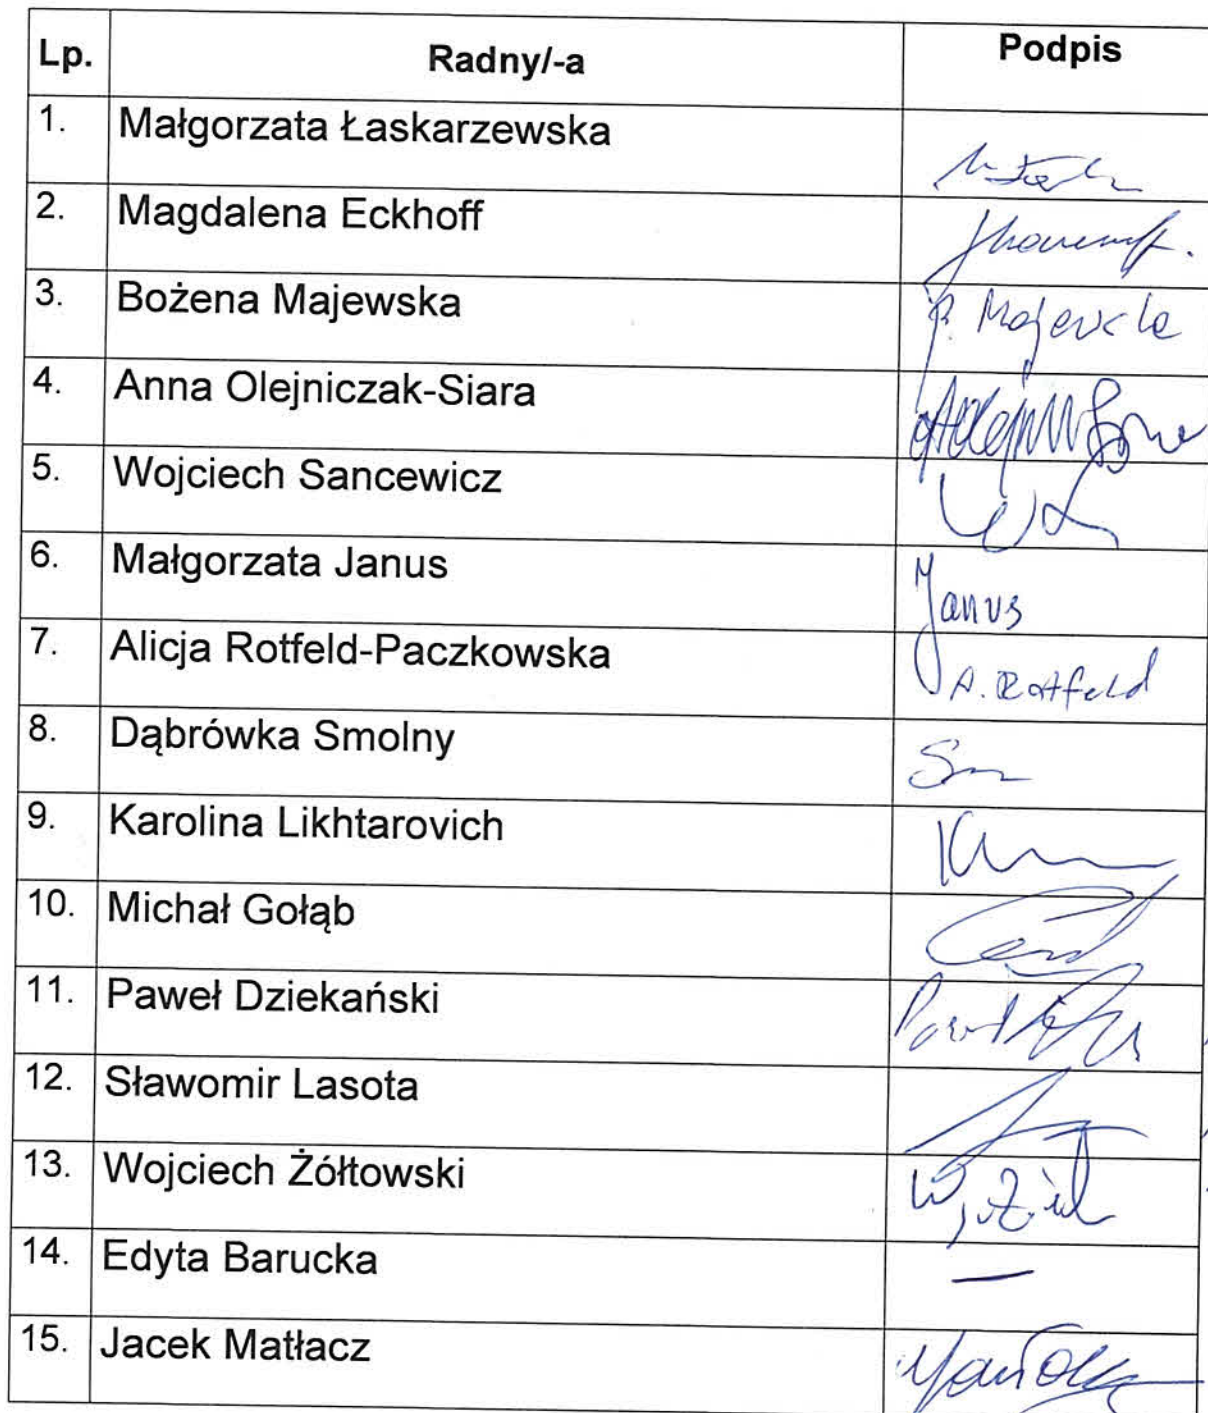 Lp. Radny/-a Podpis
1. Małgorzata Łaskarzewska
2. Magdalena Eckhoff
3. Bożena Majewska B. Majewska
4. Anna Olejniczak-Siara
5. Wojciech Sancewicz
6. Małgorzata Janus Janus
7. Alicja Rotfeld-Paczkowska A. Rotfeld
8. Dąbrówka Smolny
9. Karolina Likhtarovich
10. Michał Gołąb
11. Paweł Dziekański
12. Sławomir Lasota
13. Wojciech Żółtowski
14. Edyta Barucka —
15. Jacek Matłacz